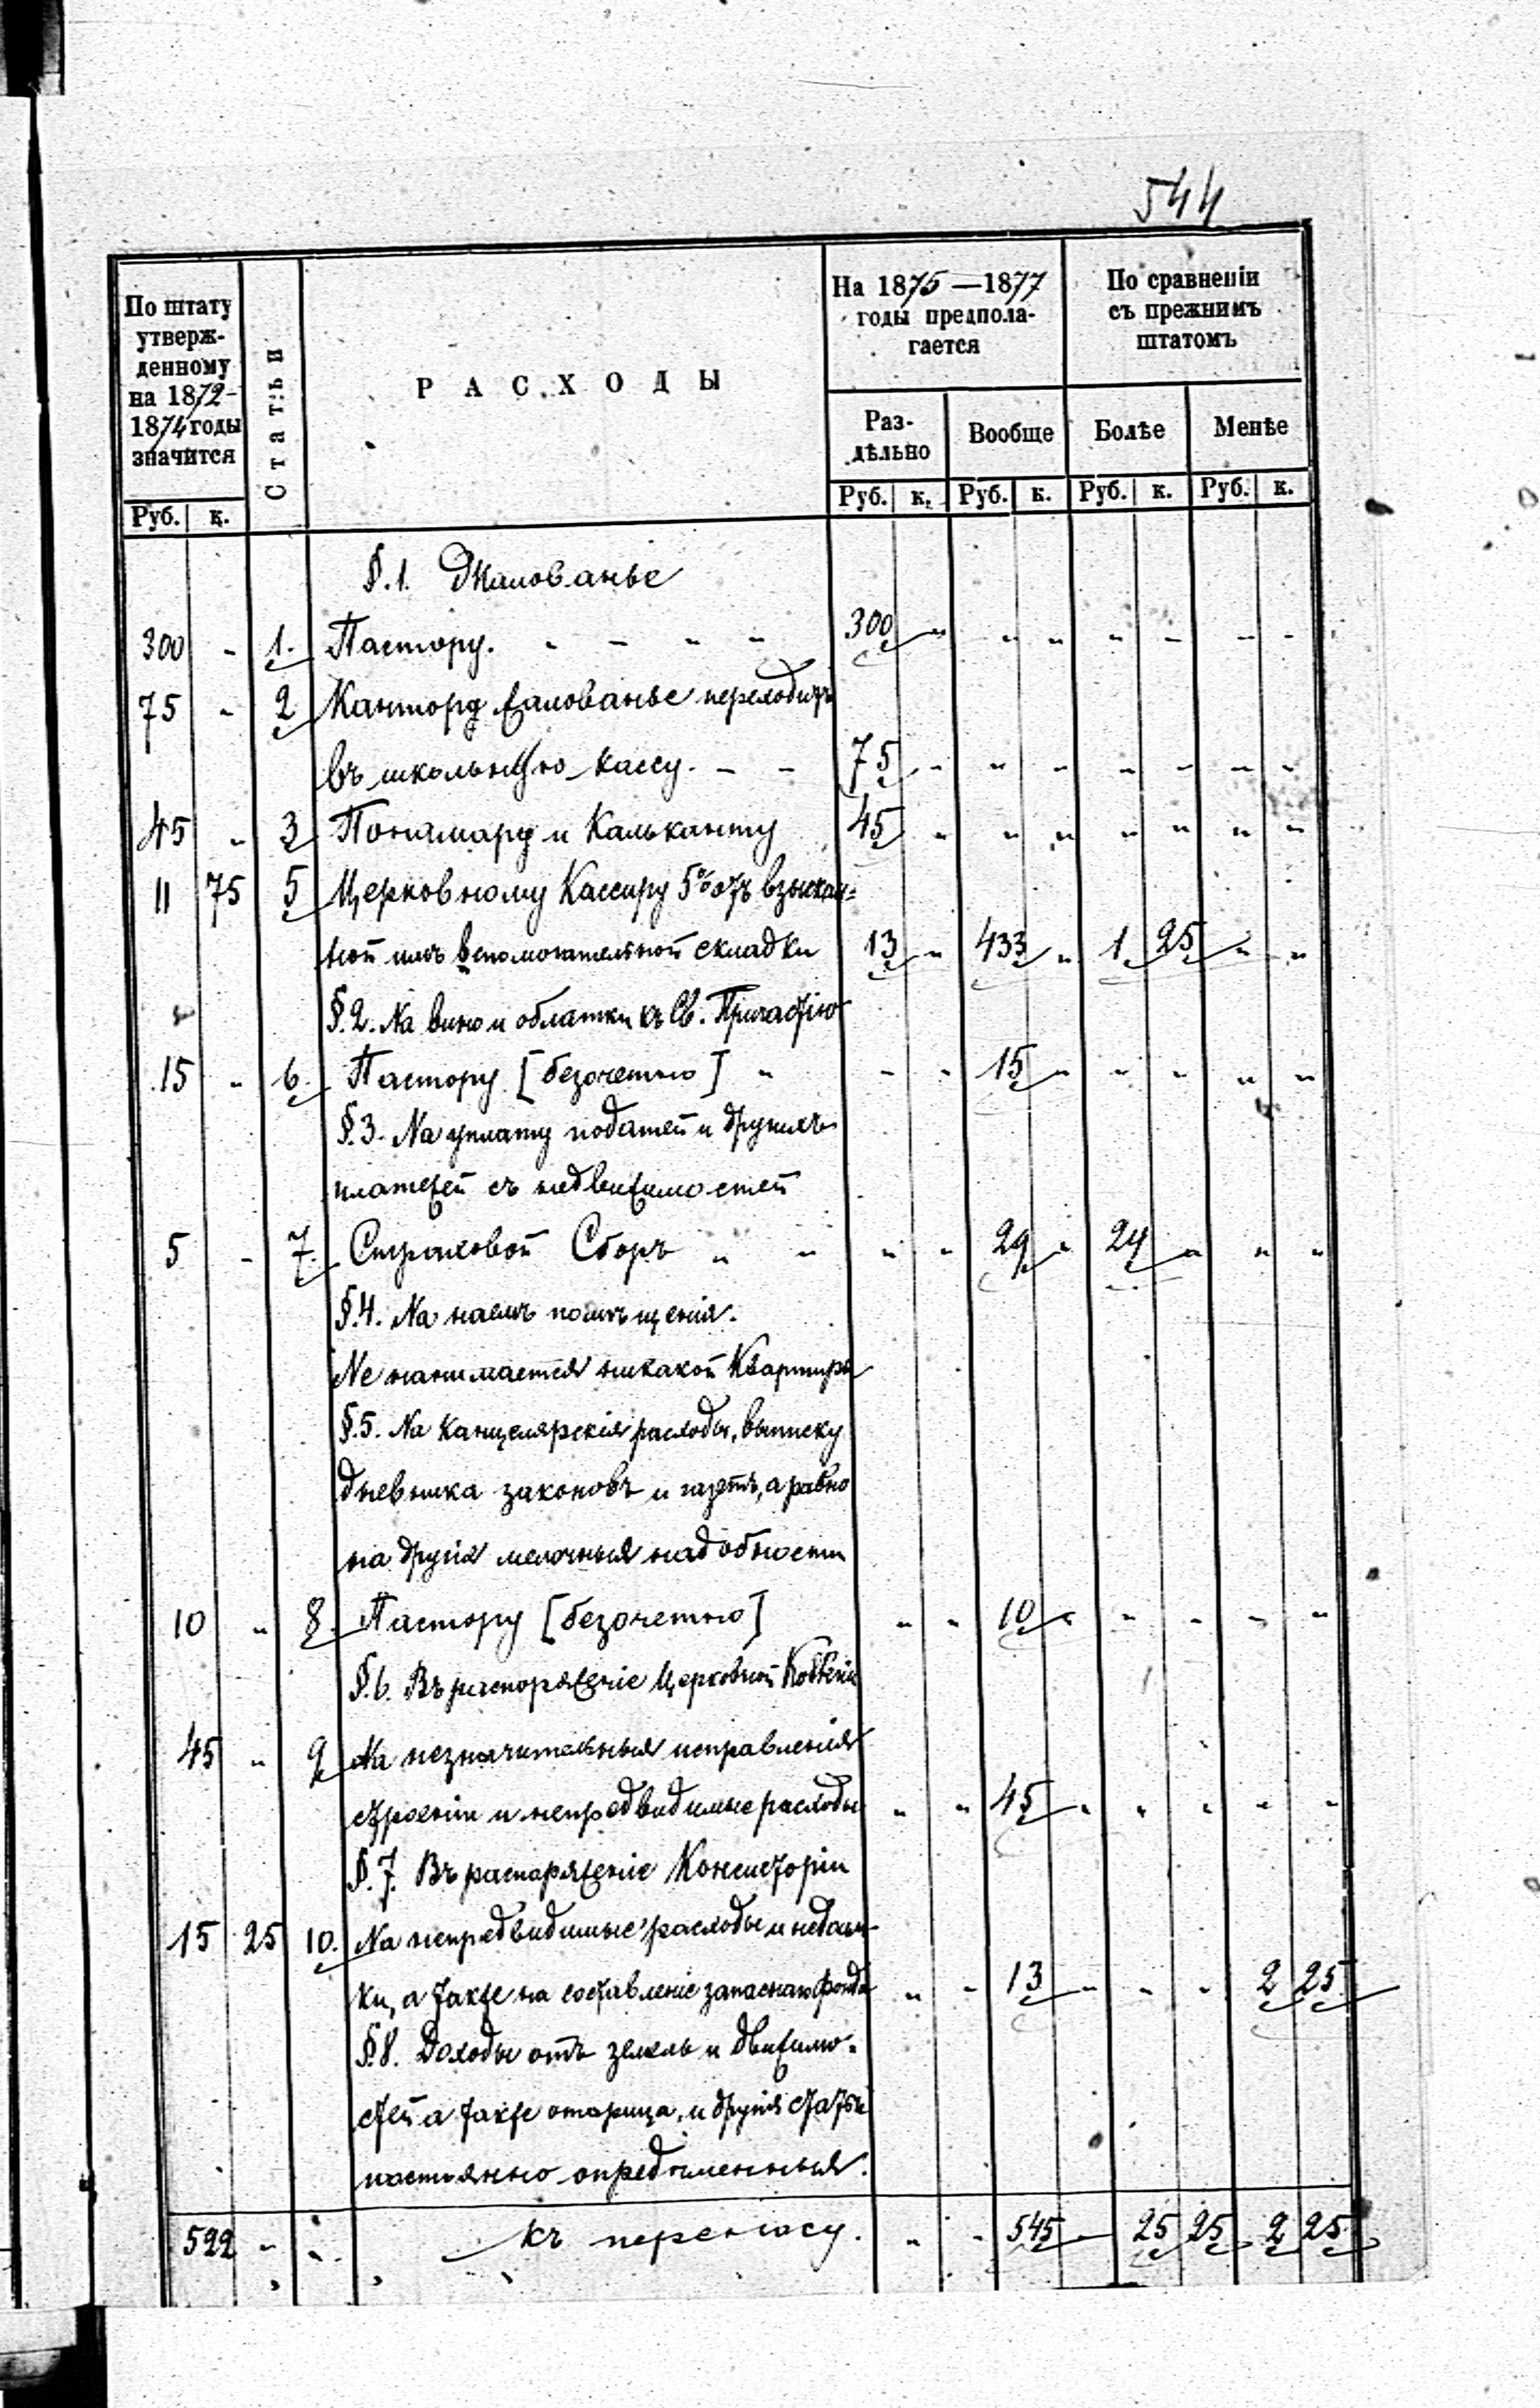 544
По штату утверж-денному на 1872-1874 годы значится
Статьи
РАСХОДЫ
На 1875—1877 годы предпола-гается
По сравненіи съ прежнимъ штатомъ
Раз-дѣльно
Вообще
Болѣе
Менѣе
Руб. к. Руб. к. Руб. к. Руб. к. Руб. к.
§.1. Жалованье
300 - 1. Пастору. - - - - 300 " " " " - - -
75 - 2 Кантору жалованье переходитъ
въ школьную кассу. - - 75 - " - - - - -
45 " 3 Понамару и Кальканту 45 " " " " " " "
11 75 5 Церковному Кассиру 5% отъ взыскан-
ной имъ вспомогательной складки 13 " 433 " 1 25 " "
§.2. На вино и облатки къ Св. Причастію
15 " 6. Пастору [безочетно] " - - 15 " " " " "
§.3. На уплату податей и другихъ
платежей съ недвижимостей
5 - 7. Страховой Сборъ " " " " 29 " 24 " " "
§.4. На наемъ помѣщенія.
Не нанимается никакой Квартиры
§.5. На Канцелярскія расходы, выписку
дневника законовъ и газетъ, а равно
на другія мелочныя надобности
10 " 8. Пастору [безочетно] " " 10 " " " " "
§.6. Въ распоряженіе Церковной
45 " 9 На незначительныя исправленія
строеніи и непредвидимые расходы " " 45 " " " " "
§.7. Въ распоряженіе Консисторіи
15 25 10. На непредвидимые расходы и недоим-
ки, а также на составленіе запаснаго фонда " - 13 - - - 2 25
§.8. Доходы отъ земель и движимо-
стей а также и другія статьи
постоянно опредѣленныя.
522 - " къ переносу. " - 545 - 25 25 2 25